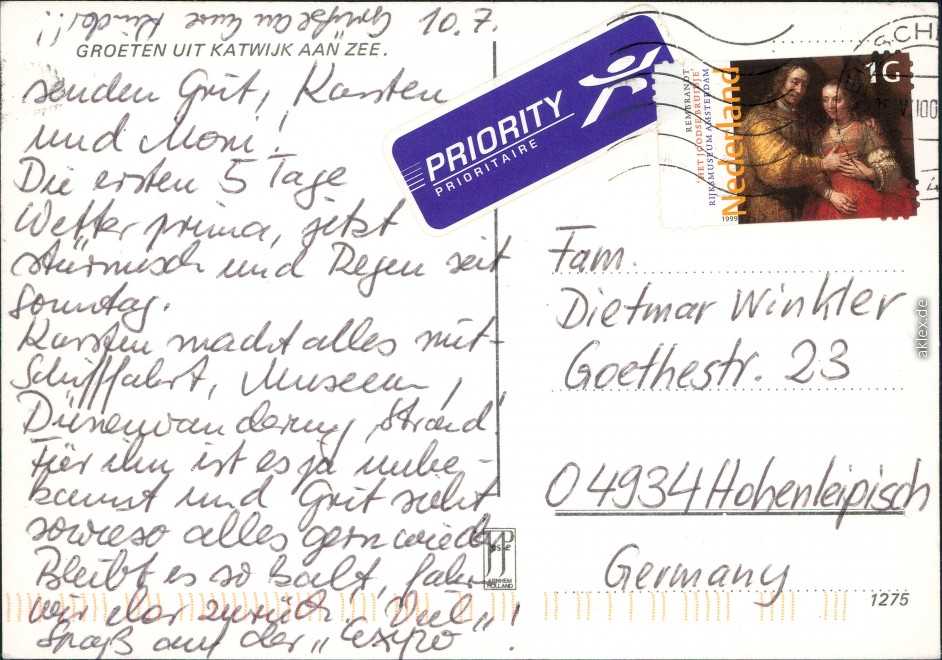 10.7.
Grüße an Eure Kinder!!
GROETEN UIT KATWIJK AAN ZEE.
senden Grit, Karsten
und Moni!
Die ersten 5 Tage
Wetter prima, jetzt
stürmisch und Regen seit
Sonntag.
Karsten macht alles mit-
Schifffahrt, Museen,
Dünenwanderung, Strand
Für ihn ist es ja unbe-
kannt und Grit sieht
sowieso alles gern wieder
Bleibt es so kalt, fahr
wir eher zurück. Viel
Spaß auf der „Expo"!
PRIORITY
PRIORITAIRE
REMBRANDT
'HET JOODSE BRUIDJE'
RIJKSMUSEUM AMSTERDAM
Nederland
1999
1G
Fam.
Dietmar Winkler
Goethestr. 23
04934 Hohenleipisch
Germany
JPP
ARNHEM
HOLLAND
1275
aklex.de